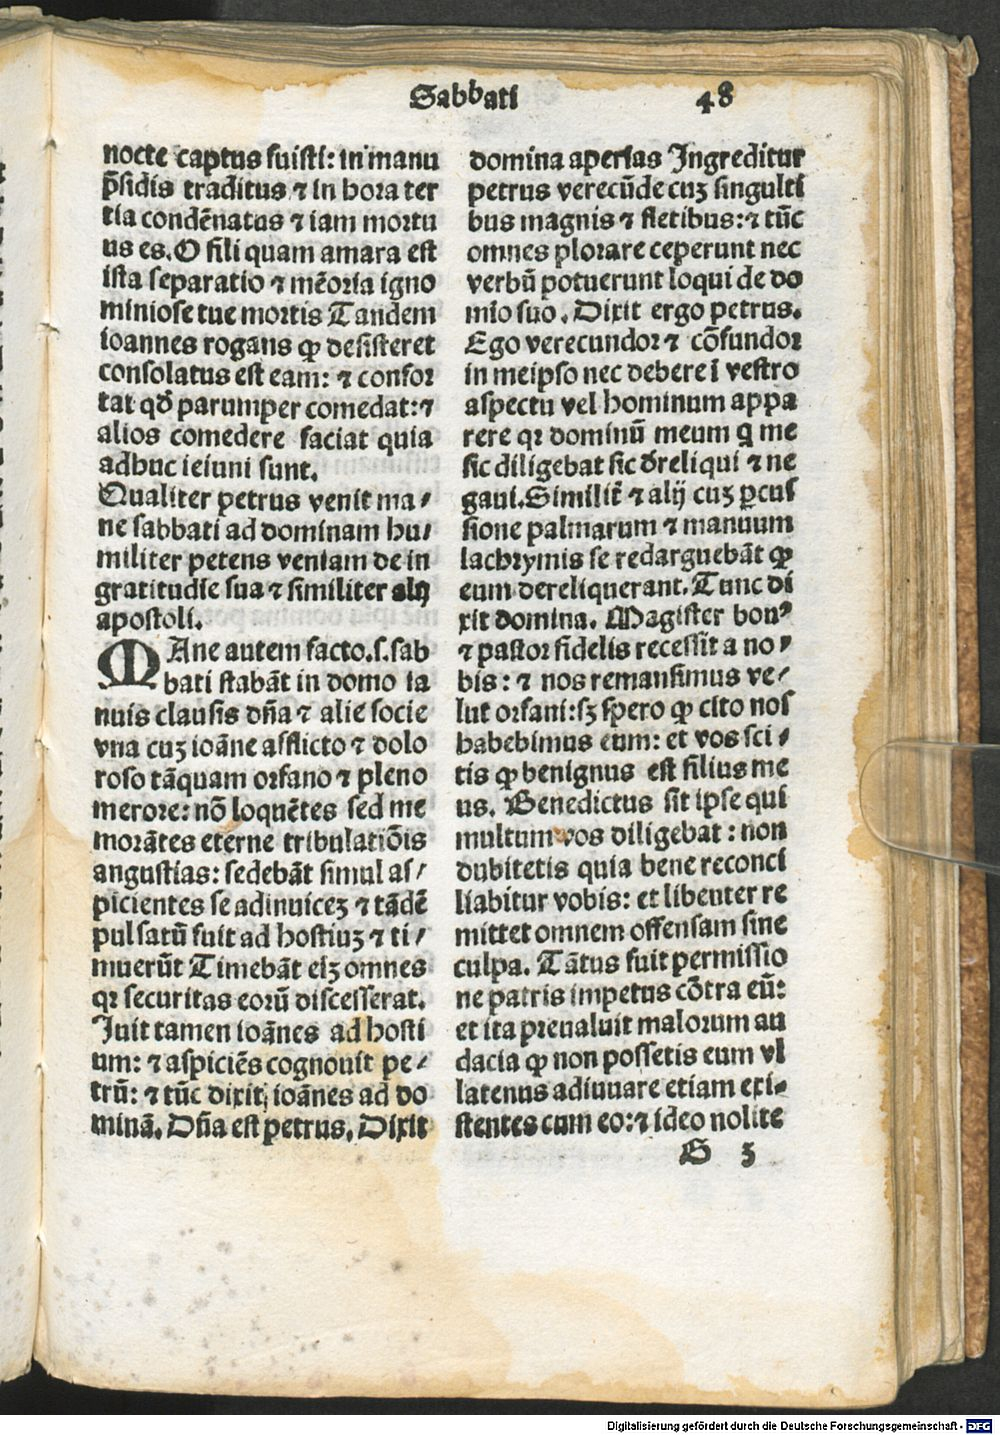 Sabbati 48
nocte captus fuisti: in manu
p̄sidis traditus ⁊ in hora ter
tia condēnatus ⁊ iam mortu
us es. O fili quam amara est
ista separatio ⁊ mēoria igno
miniose tue mortis Tandem
ioannes rogans ꝙ desisteret
consolatus est eam: ⁊ confor
tat qđ parumper comedat: ⁊
alios comedere faciat quia
adhuc ieiuni sunt.
Qualiter petrus venit ma⸗
ne sabbati ad dominam hu⸗
militer petens veniam de in
gratitudīe sua ⁊ similiter alij
apostoli.
MAne autem facto .s. sab
bati stabāt in domo ia
nuis clausis dn̄a ⁊ alie socie
vna cuꝫ ioāne afflicto ⁊ dolo
roso tāquam orfano ⁊ pleno
merore: nō loquētes sed me
morātes eterne tribulatiōis
angustias: sedebāt simul as⸗
picientes se adinuiceꝫ ⁊ tādē
pulsatū fuit ad hostiuꝫ ⁊ ti⸗
muerūt Timebāt eiꝫ omnes
qꝛ securitas eorū discesserat.
Iuit tamen ioānes ad hosti
um: ⁊ aspiciēs cognouit pe⸗
trū: ⁊ tūc dixit ioānes ad do
minā. Dn̄a est petrus. Dixit
domina aperias Ingreditur
petrus verecūde cuꝫ singulti
bus magnis ⁊ fletibus: ⁊ tūc
omnes plorare ceperunt nec
verbū potuerunt loqui de do
mīo suo. Dixit ergo petrus.
Ego verecundor ⁊ cōfundor
in meipso nec debere ī vestro
aspectu vel hominum appa
rere qꝛ dominū meum q̄ me
sic diligebat sic dereliqui ⁊ ne
gaui. Similit̄ ⁊ alij cuꝫ ꝑcus
sione palmarum ⁊ manuum
lachrymis se redarguebāt ꝙ
eum dereliquerant. Tunc di
xit domina. Magister bonꝰ
⁊ pastor fidelis recessit a no⸗
bis: ⁊ nos remansimus ve⸗
lut orfani: sꝫ spero ꝙ cito nos
habebimus eum: et vos sci⸗
tis ꝙ benignus est filius me
us. Benedictus sit ipse qui
multum vos diligebat: non
dubitetis quia bene reconci
liabitur vobis: et libenter re
mittet omnem offensam sine
culpa. Tātus fuit permissio
ne patris impetus cōtra eū:
et ita preualuit malorum au
dacia ꝙ non possetis eum vl
latenus adiuuare etiam exi⸗
stentes cum eo: ⁊ ideo nolite
G 3
Digitalisierung gefördert durch die Deutsche Forschungsgemeinschaft - DFG